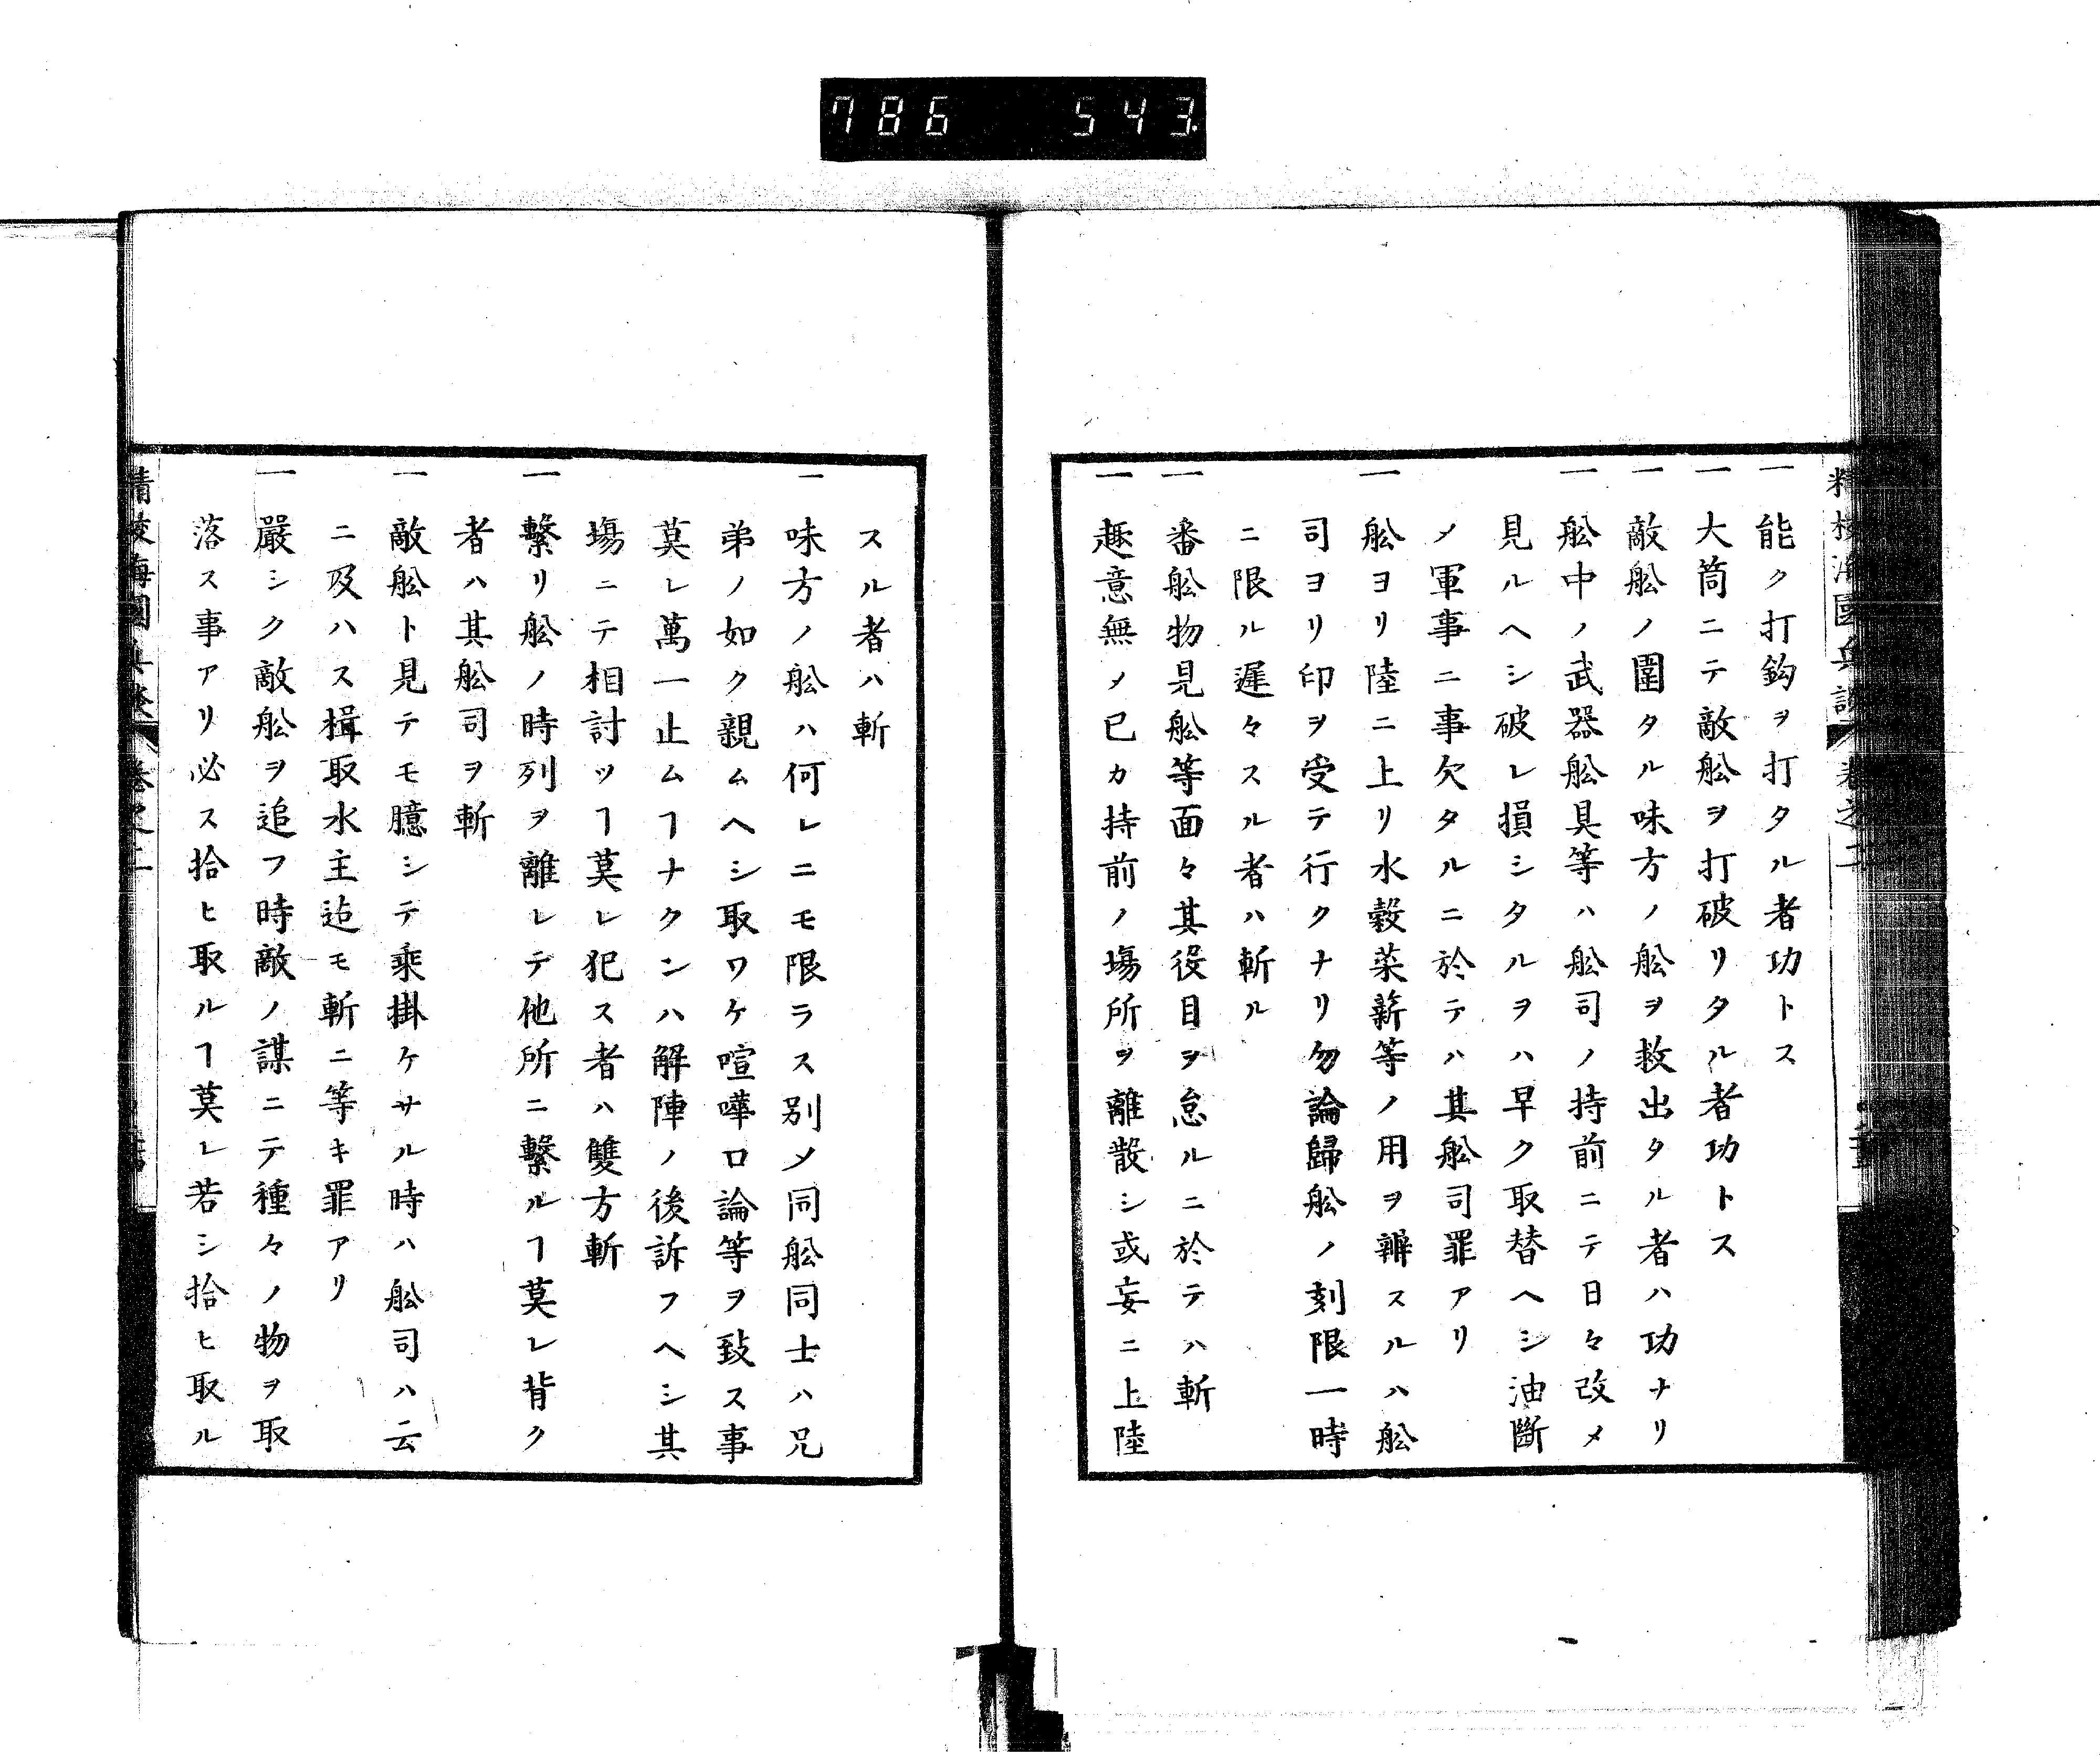 786 543
一能ク打鈎ヲ打タル者功トス
一大筒ニテ敵舩ヲ打破リタル者功トス
一敵舩ノ圍タル味方ノ舩ヲ救出タル者ハ功ナリ
一舩中ノ武器舩具等ハ舩司ノ持前ニテ日々改メ
見ルヘシ破レ損シタルヲハ早ク取替ヘシ油斷
メ軍事ニ事欠タルニ於テハ其舩司罪アリ
一舩ヨリ陸ニ上リ水穀菜薪等ノ用ヲ辨スルハ舩
司ヨリ印ヲ受テ行クナリ勿論歸舩ノ刻限一時
ニ限ル遲々スル者ハ斬ル
一番舩物見舩等面々其役目ヲ怠ルニ於テハ斬
一趣意無メ已カ持前ノ塲所ヲ離散シ或妄ニ上陸
スル者ハ斬
一味方ノ舩ハ何レニモ限ラス別メ同舩同士ハ兄
弟ノ如ク親ムヘシ取ワケ喧嘩口論等ヲ致ス事
莫レ萬一止ムヿナクンハ解陣ノ後訴フヘシ其
塲ニテ相討ツヿ莫レ犯ス者ハ雙方斬
一繫リ舩ノ時列ヲ離レテ他所ニ繫ルヿ莫レ背ク
者ハ其舩司ヲ斬
一敵舩ト見テモ臆シテ乘掛ケサル時ハ舩司ハ云
ニ及ハス楫取水主迠モ斬ニ等キ罪アリ
一嚴シク敵舩ヲ追フ時敵ノ謀ニテ種々ノ物ヲ取
落ス事アリ必ス拾ヒ取ルヿ莫レ若シ拾ヒ取ル
海國兵談 卷之二